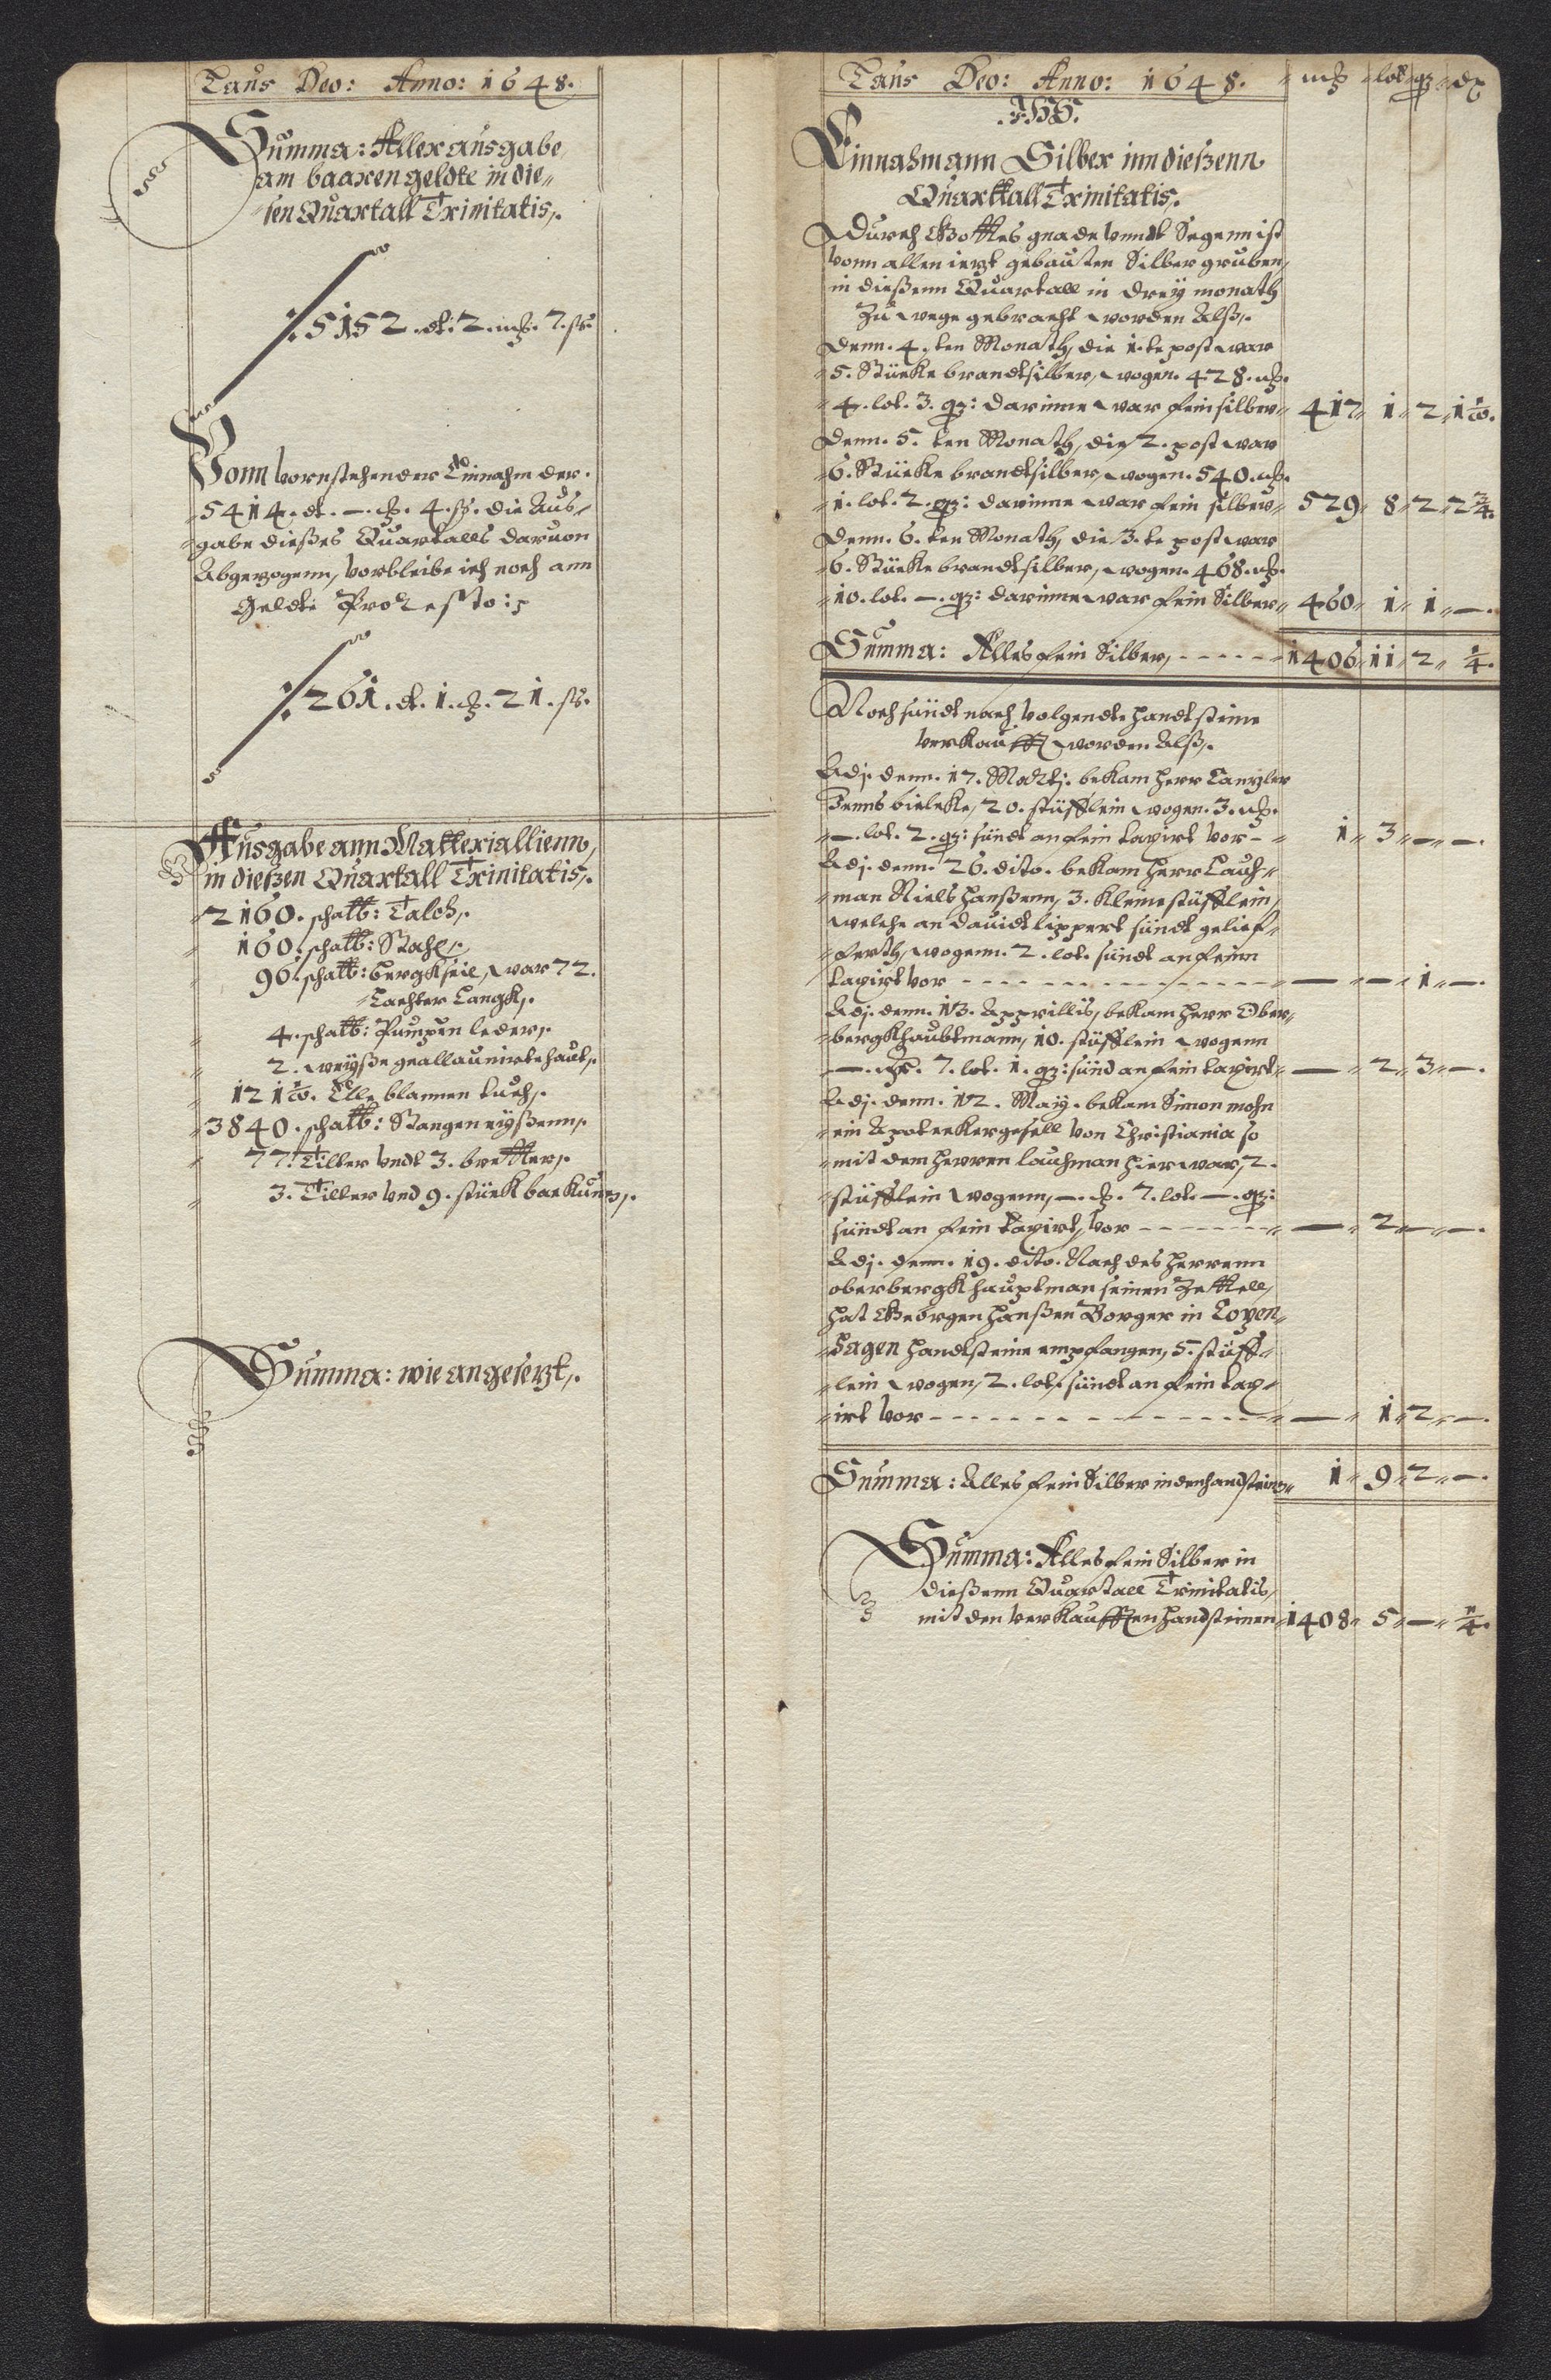 Laus Deo: Anno: 1648.
Summa: Aller ausgabe
am baaren geldte in die„
„sen Quartall Trinitatis,.
5152. dt: 2. mß. 7. ß.
Vonn vornstehender Einnahm der.
„5414. dt. —. ß. 4. ß. die Aus„
„gabe dießes Quartalls daruon
Abgezogenn, Vorbleibe ich noch ann
Geldte Pro Resto:
261. dt. 1. ß. 21. ß.
Ausgabe ann Matteriallienn,
in dießen Quartall Trinitatis,.
„2160. schalb: Talch,.
„160. schalb: Stahl,.
96. schalb: bergkseil, war 72.
„Lachter Langk,.
„4. schalb: Pumpen leder,.
„2. weyße geallaunirte haut,.
„12 1/2. Elle blannen tuch,.
„3840. schalb: Stangen eyßenn,.
„77. Tilter vndt 3. bretter,.
„3. Tilter vnd 9. stück backunen,.
Summa: wie angesetzt,.
Laus Deo: Anno: 1648. „mß „lot „qz „dz
.JHS.
Einnahm ann Silber inn dießenn
Quarttall Trinitatis.
Durch Gottes gnade vnndt Segenn ist
vonn allen ietzt gebauten Silber gruben,
in dießenn Quartall in drey monath
Zu wege gebracht worden Alß,.
Denn. 4. ten Monath, die 1. te post war
„5. Stücke brandtsilber, wogen. 428. mß.
„4. lot. 3. qz: darinne war fein silber„ 417„ 1„ 2„ 1 1/2.
Denn. 5. ten Monath, die 2. post war
„6. Stücke brandtsilber, wogen. 540. mß.
„1. lot. 2. qz: darinne war fein silber„ 529„ 8„ 2„ 2 3/4.
Denn. 6. ten Monath, die 3. te post war
„6. Stücke brandtsilber, wogen. 468. mß.
„10. lot. —. qz: darinne war fein Silber„ 460„ 1„ 1„ —.
Summa: Alles fein Silber, - - - - - „1406„ 11„ 2„ 1/4.
Noch sündt nach volgendte handtsteine
verkaufft worden Alß,.
Adj. denn. 17. Martij. bekam herr Cantzler
Jenns bielcke, 20. stüfflein wogen. 3. mß.
„—. lot. 2. qz: sündt an fein taxirt vor - „ 1„ 3„ —„ —.
Adj. denn. 26. dito. bekam herr Lauch„
„man Niels hanßenn, 3. kleine stüfflein,
welche an dauidt lippert sündt gelief„
„ferth, wogenn. 2. lot. sündt an feinn
taxirt vor - - - - - - - „ —„ —„ 1„ —.
Adj. denn. 13. Apprillis, bekam herr Ober„
„bergkhaubtmann, 10. stüfflein wogenn
—. mß. 7. lot. 1. qz: sünd an fein taxirt„ —„ 2„ 3„ —.
Adj. denn. 12. Maiy. bekam Simon mohn
„ein Apoteckergesell von Christiania so
„mit dem herren lauchman hier war, 2.
„stüfflein wogenn, —. ß. 7. lot. —. qz:
sündt an fein taxirt, vor - - - - - „ —„ 2„ —„ —.
Adj. denn. 19. dito. Nach des herrenn
oberbergkhauptman seinen Zettell,
hat Geörgen hanßen Borger in Copen„
„hagen handtsteine empfangen, 5. stüff„
„lein wogen, 2. lot. sündt an fein tax„
„irt vor - - - - - - - „ —„ 1„ 2„ —.
Summa: Alles fein Silber in den handsteinen„ 1„ 9„ 2„ —.
Summa: Alles fein Silber in
dießenn Quartall Trinitatis,
mit den verkaufften handsteinen„ 1408„ 5„ —„ 1/4.